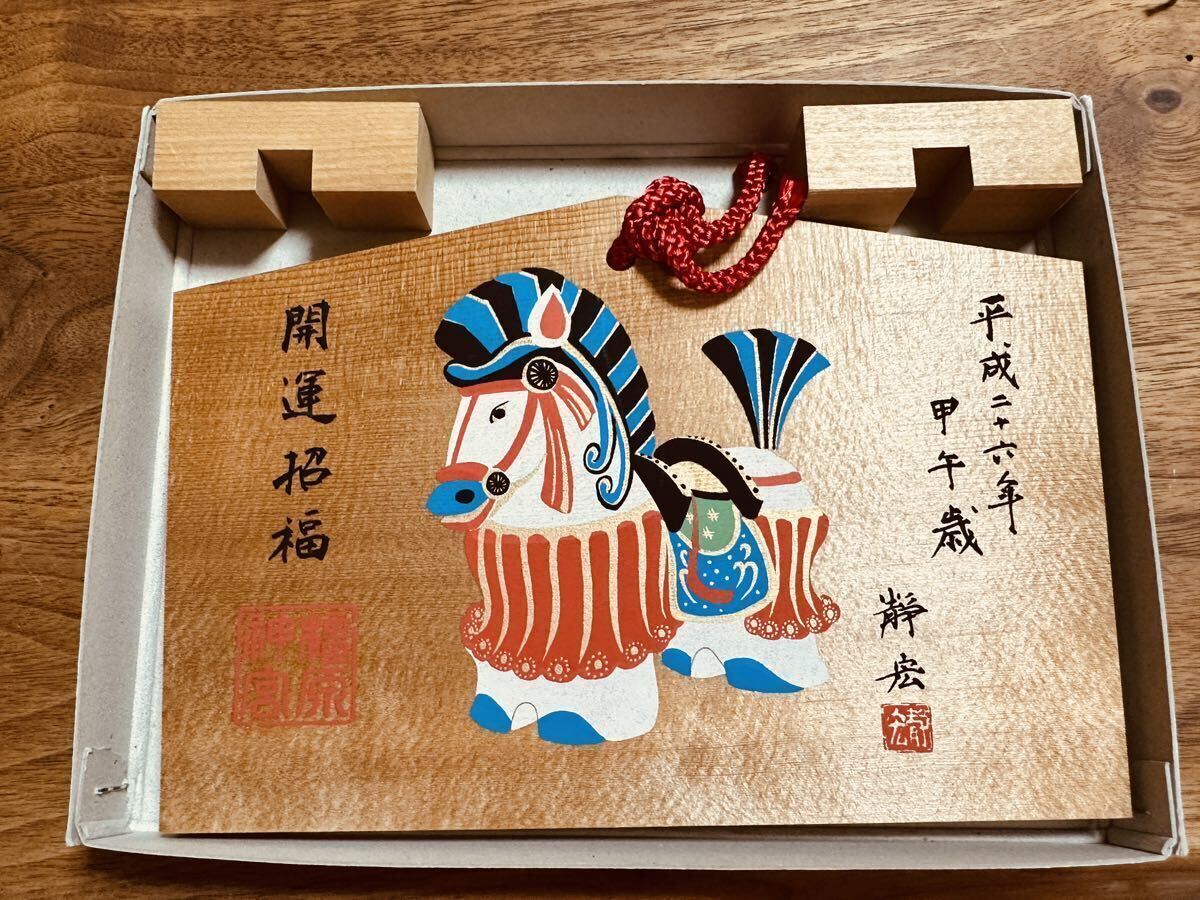 平成二十六年
甲午歳
靜宏
開運招福
橿原神宮